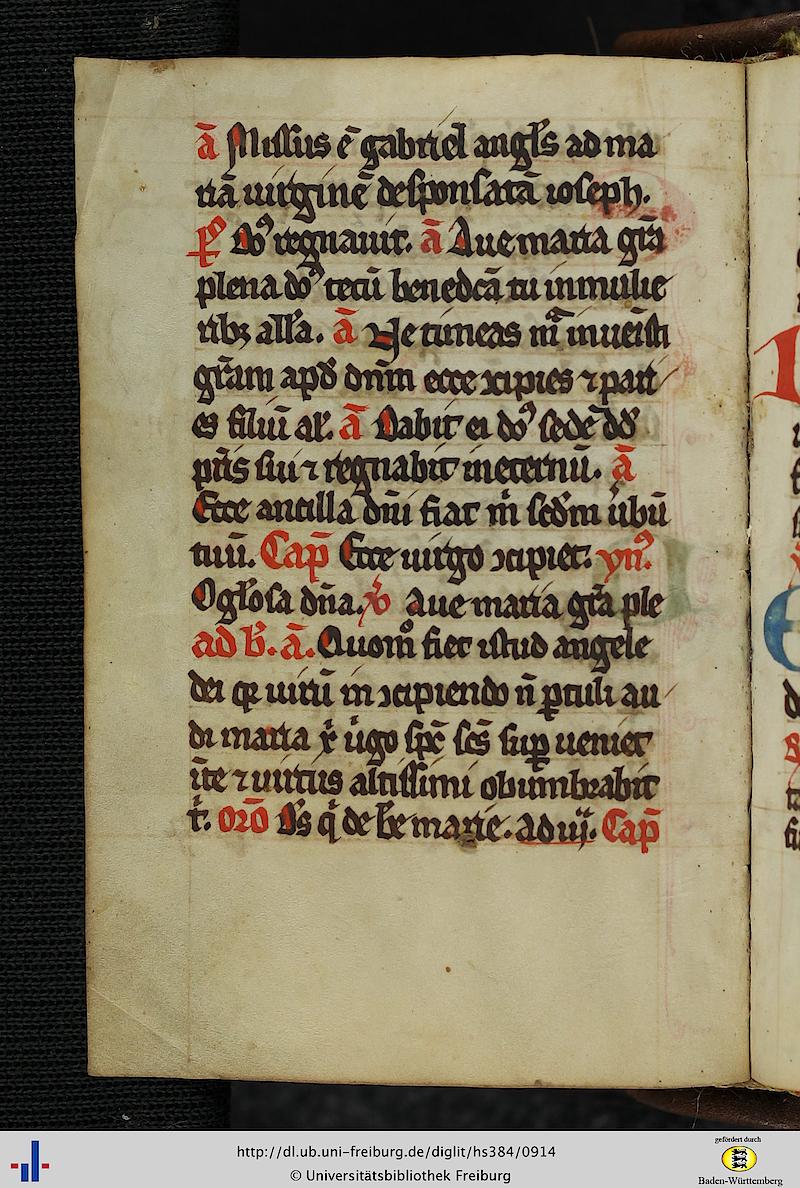 ā Missus ē gabriel angl's ad ma
riā uirginē desponsatā ioseph.
p͞s Do' regnauit. ā Aue maria gr̄a
plena do' tecū benedcā tu in mulie
ribꝫ all'a. ā Ne timeas m̄a inuēisti
gr̄am apd' dn̄m ecce ↄcipies ⁊ pari
es filiū al'. ā Dabit ei do' sedē dd'
pr̄is sui ⁊ regnabit in eternū. ā
Ecce ancilla dn̄i fiat m̄ scd'm u̇bū
tuū. Cap̄ Ecce uirgo ↄcipiet. yn'.
O gl'osa dn̄a. v̄ Aue maria gr̄a ple
ad b'. ā. Quomo fiet istud angele
dei qr uirū in ↄcipiendo n̄ ꝑtuli au
di maria x̄ u̇go sp̄c sc̄s suꝑ ueniet
īte ⁊ uirtus altissimi obūmbrabit
t'. oro D's q' de b'e marie. ad uj. Cap̄
http://dl.ub.uni-freiburg.de/diglit/hs384/0914
© Universitätsbibliothek Freiburg
gefördert durch
Baden-Württemberg